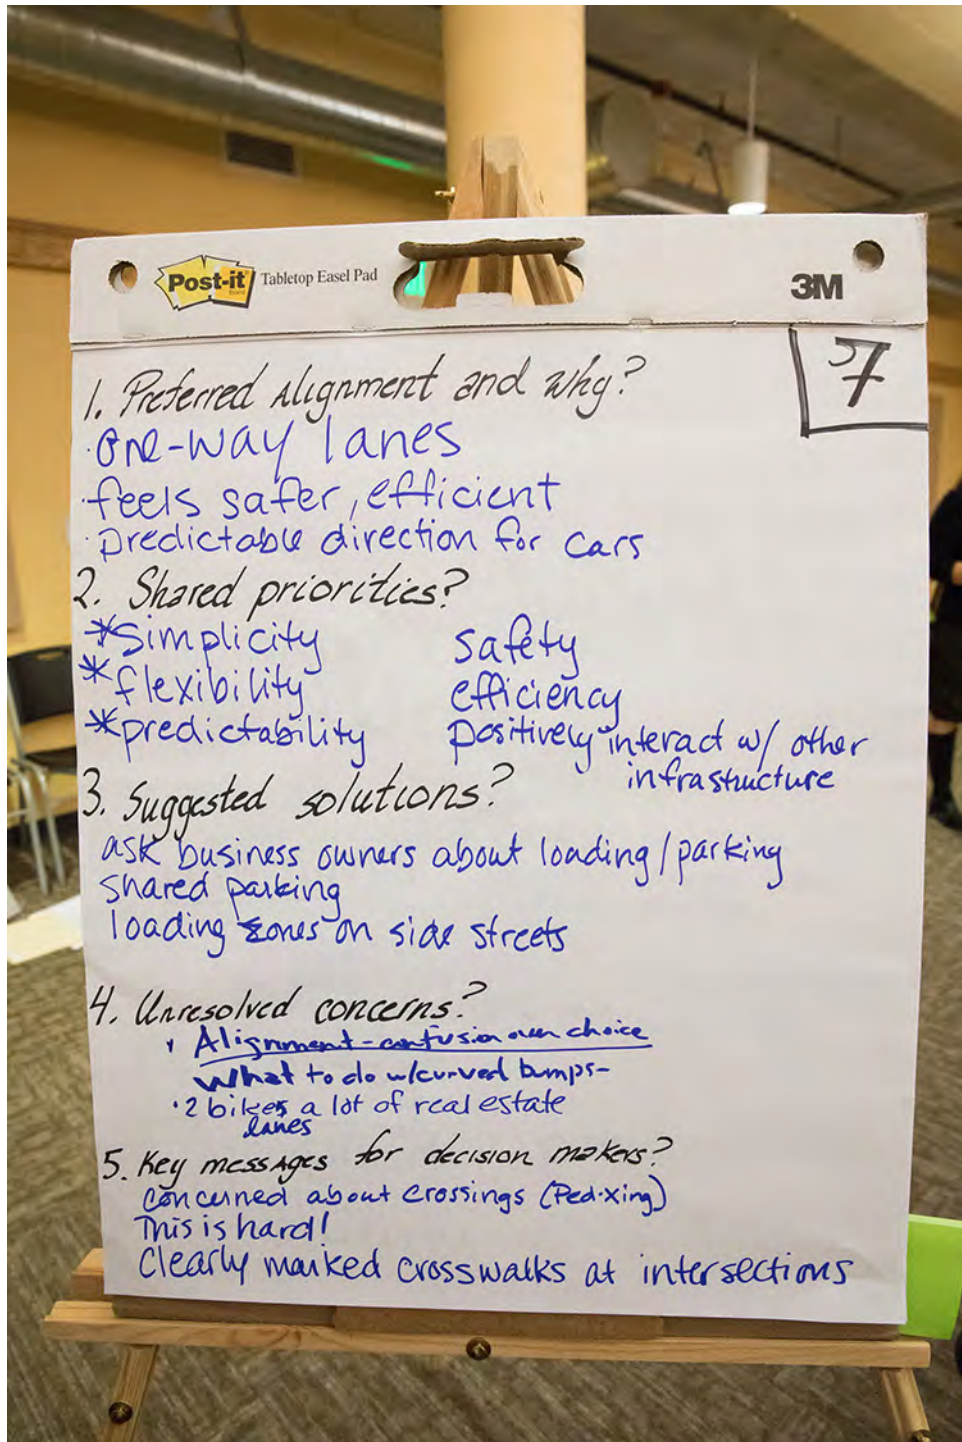 Post-it
Brand
Tabletop Easel Pad
3M
7
1. Preferred Alignment and why?
· One-way lanes
· feels safer, efficient
· predictable direction for cars
2. Shared priorities?
*Simplicity
Safety
*flexibility
efficiency
*predictability
positively interact w/ other
infrastructure
3. Suggested solutions?
ask business owners about loading/parking
shared parking
loading zones on side streets
4. Unresolved concerns?
· Alignment - confusion over choice
What to do w/curved bumps-
· 2 bikes a lot of real estate
lanes
5. Key messages for decision makers?
Concerned about crossings (Ped-xing)
This is hard!
Clearly marked crosswalks at intersections